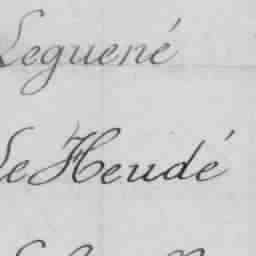 Leguené
Le Heudé